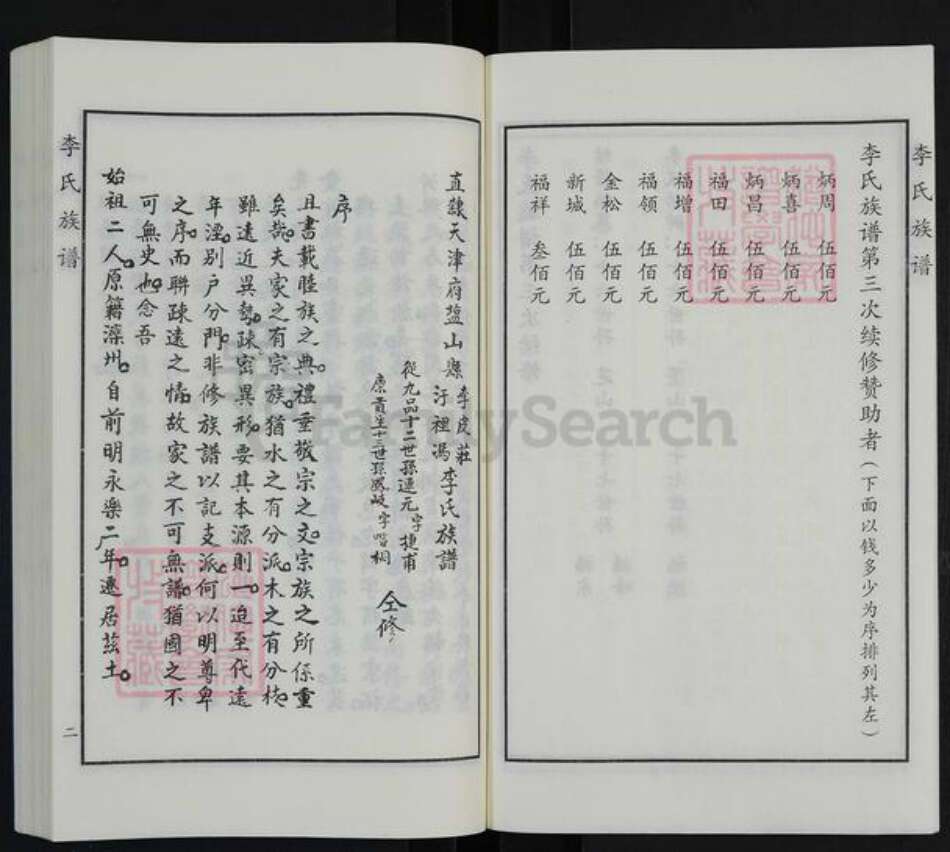 李氏族谱
李氏族谱第三次续修赞助者(下面以钱多少为序排列其左)
炳周 伍佰元
炳喜 伍佰元
炳昌 伍佰元
福田 伍佰元
福增 伍佰元
福领 伍佰元
金松 伍佰元
新城 伍佰元
福祥 叁佰元
直隸天津府盐山縣 李皮莊 汙裡馮 李氏族譜
從九品十二世孫連元字捷甫
廪貢生十三世孫鳳岐字喈桐
仝修
序
且書載睦族之典。禮重敬宗之文。宗族之所係重
矣哉。夫家之有宗族。猶水之有分派。木之有分枝。
雖遠近異勢。疎密異形。要其本源則一。迨至代遠
年湮。别户分門。非修族譜以記支派。何以明尊卑
之序。而聯疎遠之情。故家之不可無譜。猶國之不
可無史也。念吾
始祖二人。原籍灤州。自前明永樂二年。遷居兹土。
李氏族谱
二
FamilySearch